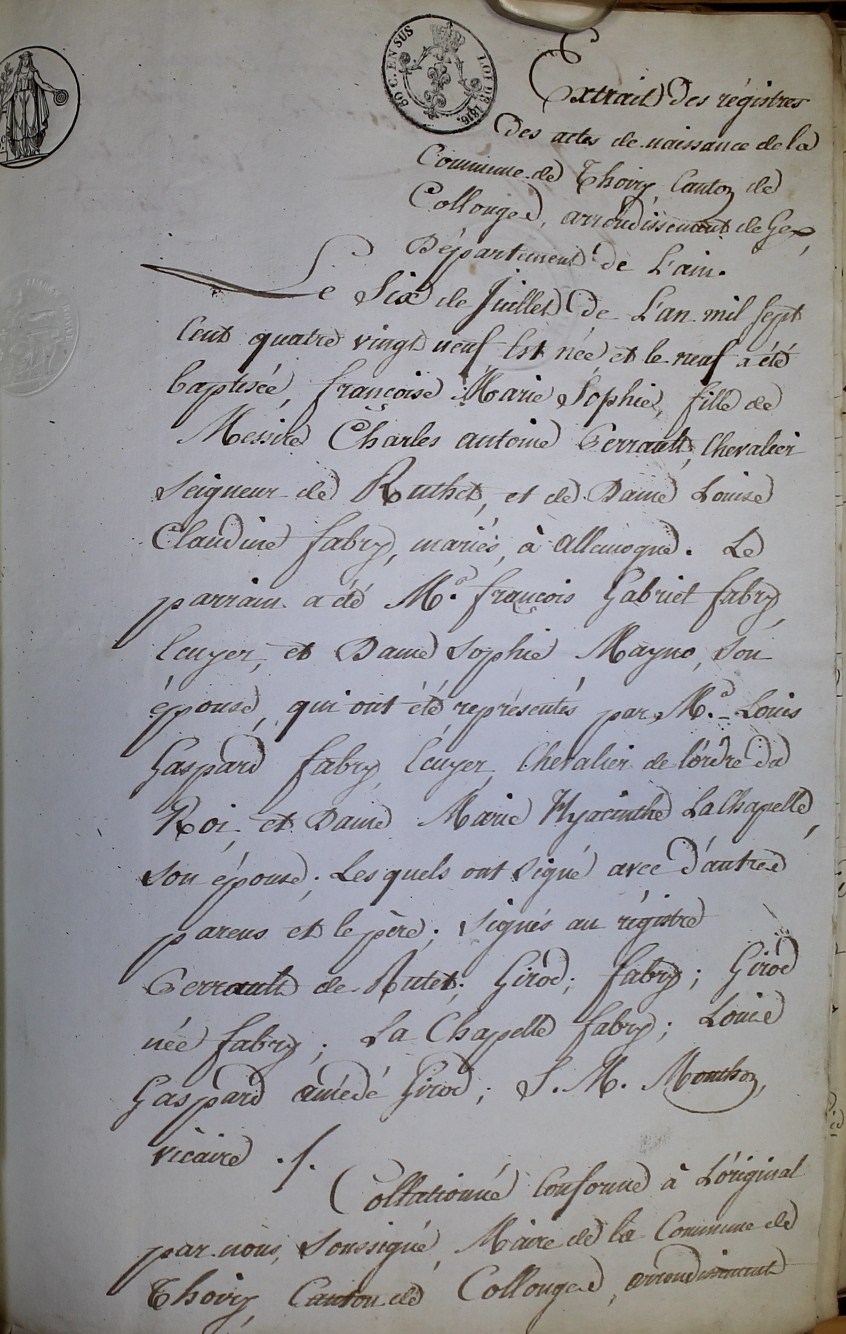 50 C. EN SUS
LOI DE 1816.
Extrait des régistres
des actes de naissance de la
Commune de Thoiry, Canton de
Collonges, arrondissement de Gex,
Département de L'ain.
Le Six de Juillet de L'an mil sept
cent quatre vingt neuf Est née et le neuf a été
baptisée, françoise Marie Sophie, fille de
Messire Charles antoine Perrault, Chevalier
Seigneur de Ruthet, et de Dame Louise
Claudine fabry, mariés, à allemogne. Le
parrain a été Mr. françois Gabriel fabry,
Ecuyer, et Dame Sophie Mayno, son
épouse, qui ont été représentés par Mr. Louis
Gaspard fabry, Ecuyer, Chevalier de l'ordre du
Roi, et Dame Marie Hyacinthe La Chapelle,
son épouse; Lesquels ont signé avec d'autres
parens et le père; Signés au régistre
Perrault de Rutet; Girod; fabry; Girod
née fabry; La Chapelle fabry; Louise
Gaspard amédé Girod; S. M. Monthoz,
vicaire ./.
Collationné Conforme à L'original
par nous, soussigné, Maire de la Commune de
Thoiry, Canton de Collonges, arrondissement